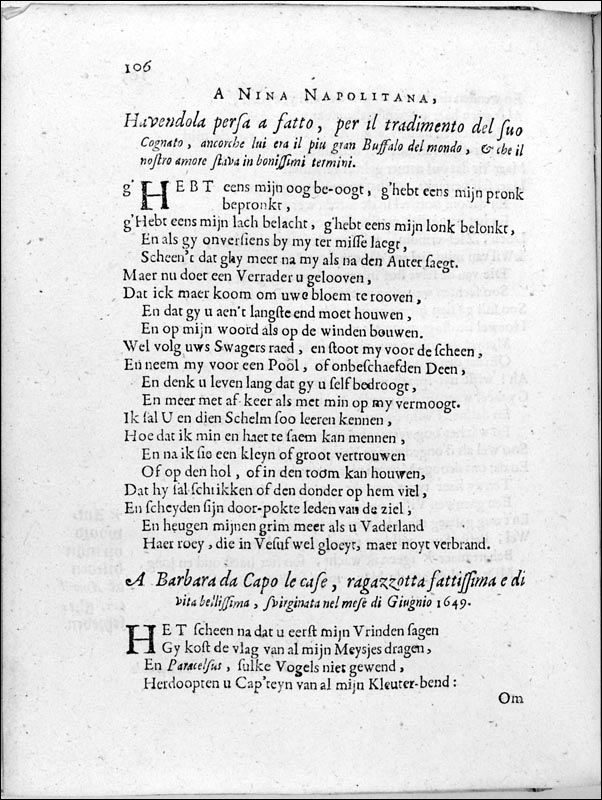 106
A NINA NAPOLITANA,
Havendola persa a fatto, per il tradimento del suo
Cognato, ancorche lui era il piu gran Buffalo del mondo, & che il
nostro amore stava in bonissimi termini.
g'HEBT eens mijn oog be-oogt, g'hebt eens mijn pronk
bepronkt,
g'Hebt eens mijn lach belacht, g'hebt eens mijn lonk belonkt,
En als gy onversiens by my ter misse laegt,
Scheen't dat ghy meer na my als na den Auter saegt.
Maer nu doet een Verrader u gelooven,
Dat ick maer koom om uwe bloem te rooven,
En dat gy u aen't langste end moet houwen,
En op mijn woord als op de winden bouwen.
Wel volg uws Swagers raed, en stoot my voor de scheen,
En neem my voor een Pool, of onbeschaefden Deen,
En denk u leven lang dat gy u self bedroogt,
En meer met af keer als met min op my vermoogt.
Ik sal U en dien Schelm soo leeren kennen,
Hoe dat ik min en haet te saem kan mennen,
En na ik sie een kleyn of groot vertrouwen
Of op den hol, of in den toom kan houwen,
Dat hy sal schrikken of den donder op hem viel,
En scheyden sijn door-pokte leden van de ziel,
En heugen mijnen grim meer als u Vaderland
Haer roey, die in Vesuf wel gloeyt, maer noyt verbrand.
A Barbara da Capo le case, ragazzotta fattissima e di
vita bellissima, svirginata nel mese di Giugnio 1649.
HET scheen na dat u eerst mijn Vrinden sagen
Gy kost de vlag van al mijn Meysjes dragen,
En Paracelsus, sulke Vogels niet gewend,
Herdoopten u Cap'teyn van al mijn Kleuter-bend:
Om